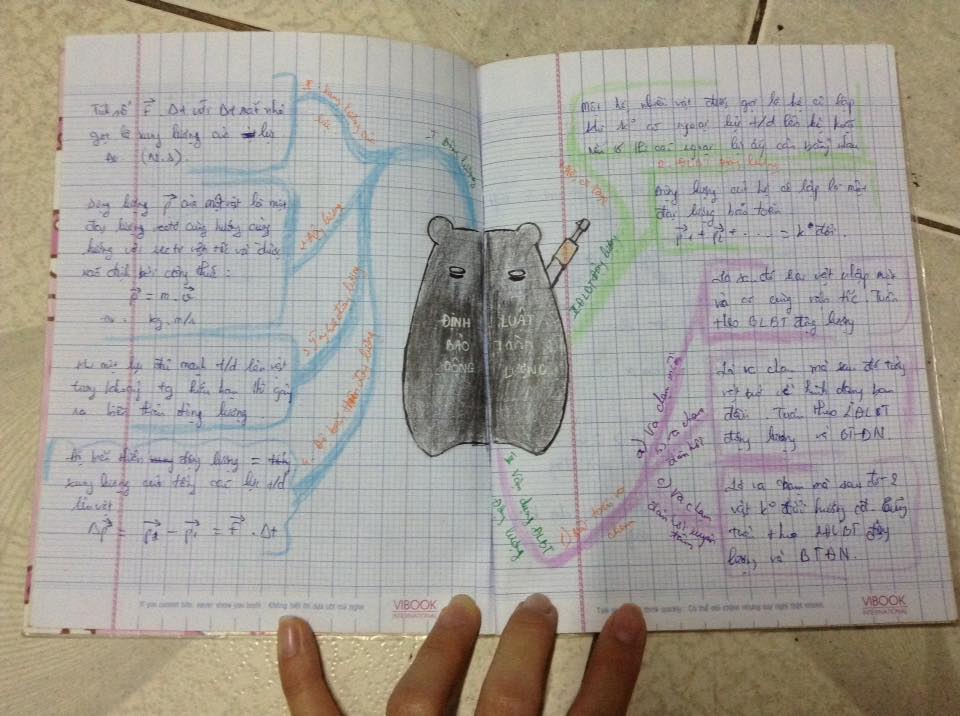 Tích số F→ . Δt với Δt rất nhỏ
gọi là xung lượng của lực
(N.s).
Động lượng p→ của một vật là một
đại lượng vectơ cùng hướng
với vectơ vận tốc và được
xác định bởi công thức:
p→ = m . v→
kg . m/s
lực đủ mạnh t/d lên vật
trong khoảng tg hữu hạn thì gây
ra biến thiên động lượng.
Độ biến thiên động lượng =
xung lượng của tổng các lực t/d
lên vật
Δp→ = p₂→ - p₁→ = F→ . Δt
xung lượng của
lực
Động lượng
động lượng
Độ biến thiên động lượng
I Động lượng
ĐỊNH LUẬT
BẢO TOÀN
ĐỘNG LƯỢNG
Một hệ nhiều vật được gọi là hệ cô lập
khi k° có ngoại lực t/d lên hệ hoặc
nếu có thì các ngoại lực ấy cân bằng nhau
Hệ cô lập
2. ĐLBT động lượng
Động lượng của hệ cô lập là một
đại lượng bảo toàn
p₁→ + p₂→ + ..... = k° đổi.
II ĐLBT động lượng
Là va
vật nhập một
và có cùng vận tốc. Tuân
theo ĐLBT động lượng
a) Va chạm mềm
Là va chạm mà sau đó từng
vật trở về hình dạng ban
đầu. Tuân theo ĐLBT
động lượng và BTĐN.
b) va chạm
đàn hồi
Là va chạm mà sau đó 2
vật k° đổi hướng
tuân theo ĐLBT động
lượng và BTĐN.
c) Va chạm
đàn hồi xuyên
tâm
III Vận dụng ĐLBT
động lượng
Bài toán va
chạm
If you cannot bite, never show you teeth. Không biết thì dựa cột mà nghe
VIBOOK
INTERNATIONAL
think quickly:
VIBOOK
INTERNATIONAL